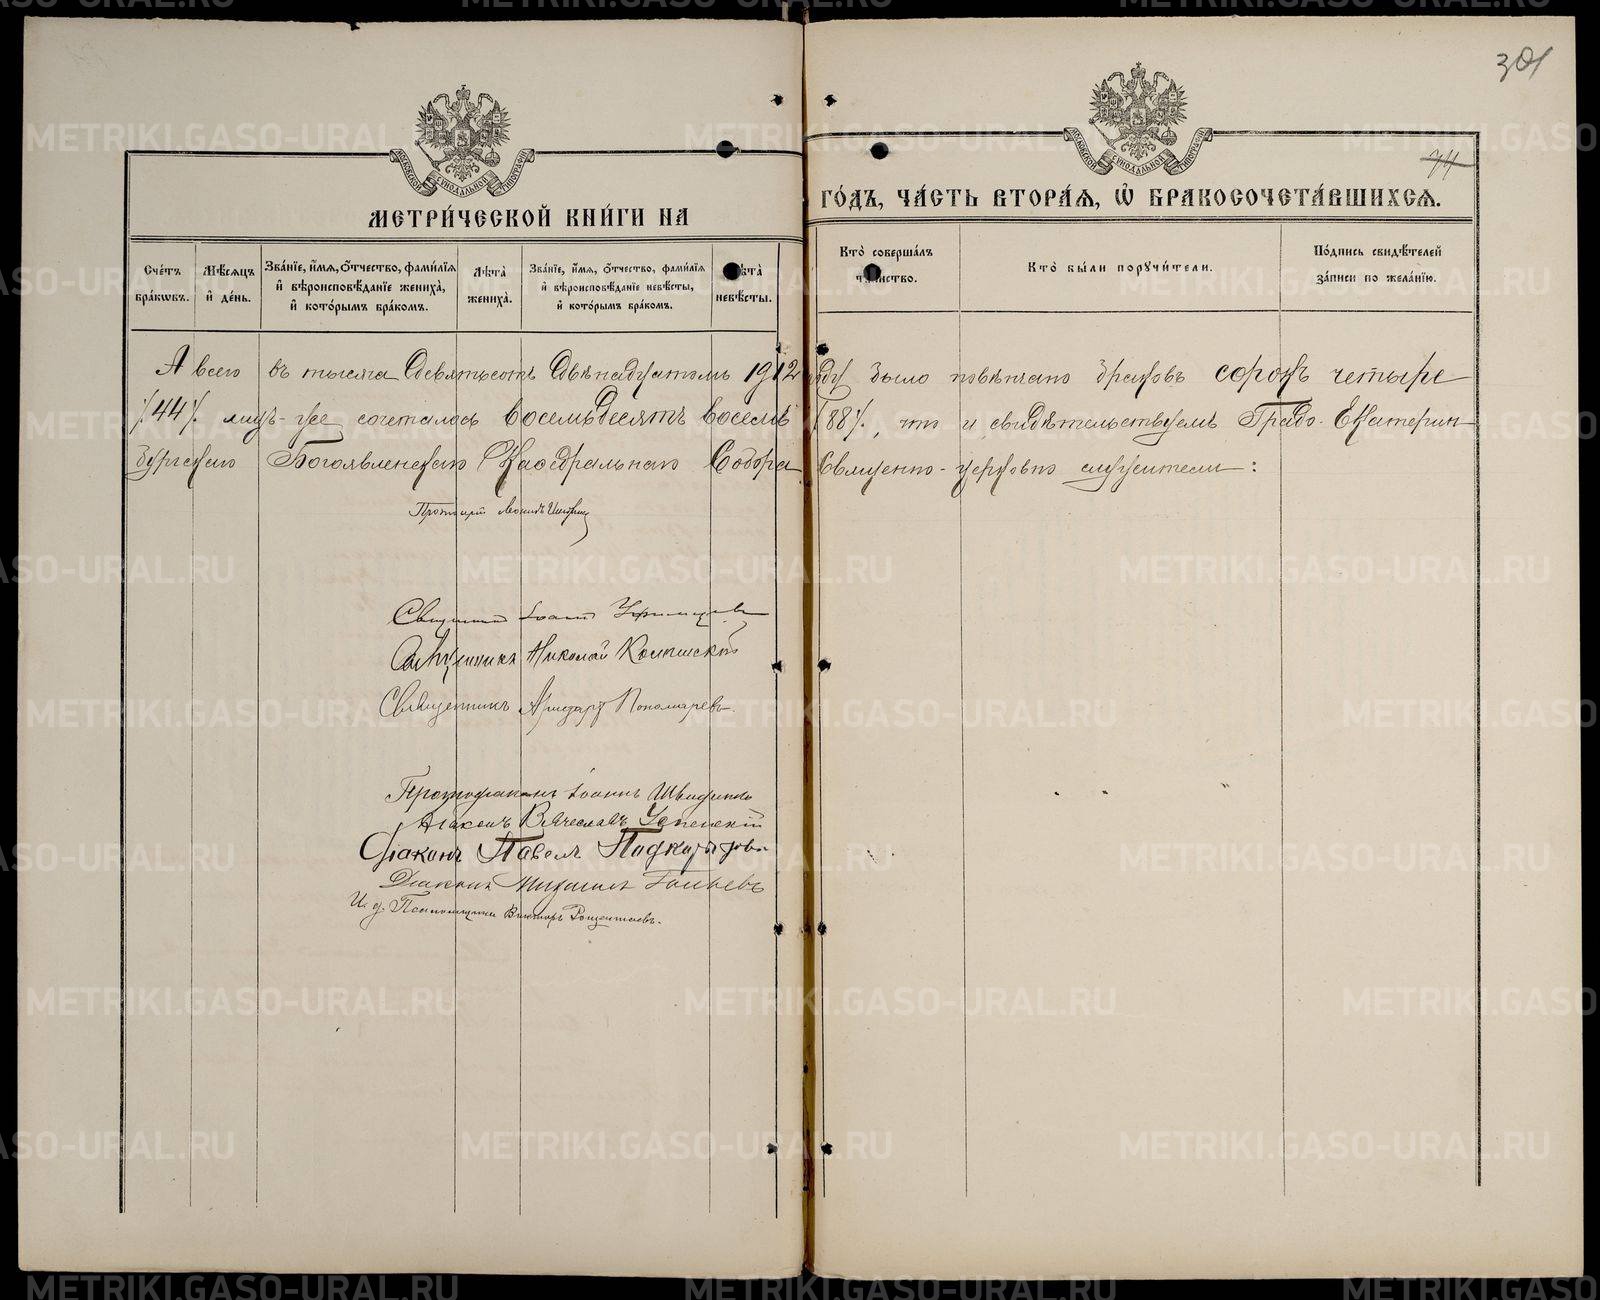 301
74
МОСКОВСКОЙ СѴНОДАЛЬНОЙ ТИПОГРАФІИ
МОСКОВСКОЙ СѴНОДАЛЬНОЙ ТИПОГРАФІИ
МЕТРИ́ЧЕСКОЙ КНИ́ГИ НА ГО́ДЪ, ЧА́СТЬ ВТОРА́Я, Ѽ БРАКОСОЧЕТА́ВШИХСЯ.
Сче́тъ бра́кѡвъ.
Мѣ́сяцъ и҆ де́нь.
Зва́нїе, и҆́мя, ѻ҆́тчество, фами́лїя и҆ вѣроисповѣ́данїе жениха̀, и҆ кото́рымъ бра́комъ.
Лѣ́та жениха̀.
Зва́нїе, и҆́мя, ѻ҆́тчество, фами́лїя и҆ вѣроисповѣ́данїе невѣ́сты, и҆ кото́рымъ бра́комъ.
невѣ́сты.
Кто̀ соверша́лъ
Кто̀ бы́ли поручи́тели.
По́дпись свидѣ́телей за́писи по жела́нїю.
А всего въ тысяча девятьсотъ двѣнадцатомъ 1912 году было повѣнчано браковъ сорокъ четыре
/44/. лицъ-же сочеталось восемьдесятъ восемь /88/., что и свидѣтельствуемъ Градо-Екатерин
бургскаго Богоявленскаго Каѳедральнаго Собора Священно-церковно служители:
Протоіерей
Священникъ Іоаннъ
Священникъ Николай
Священникъ Пономаревъ.
Протодіаконъ Іоаннъ
Діаконъ Вячеславъ Успенскій
Діаконъ Павелъ
Діаконъ Михаилъ
И. д. Псаломщика Викторъ
METRIKI.GASO-URAL.RU